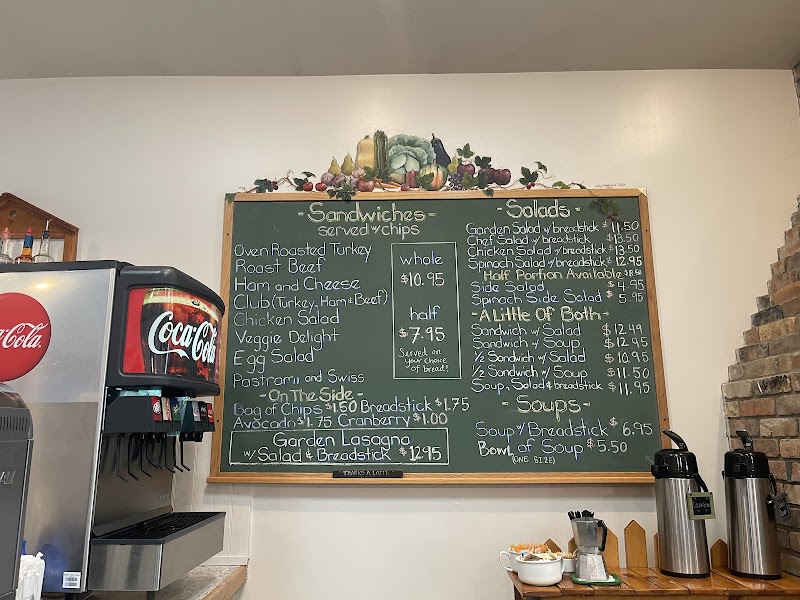 - Sandwiches -
served w/ chips
Oven Roasted Turkey
Roast Beef
Ham and Cheese
Club (Turkey, Ham & Beef)
Chicken Salad
Veggie Delight
Egg Salad
Pastrami and Swiss
whole
$10.95
half
$7.95
Served on
your choice
of bread!
- On The Side -
Bag of Chips $1.50 Breadstick $1.75
Avocado $1.75 Cranberry $1.00
Garden Lasagna
w/ Salad & Breadstick $12.95
- Salads -
Garden Salad w/ breadstick $11.50
Chef Salad w/ breadstick $13.50
Chicken Salad w/ breadstick $13.50
Spinach Salad w/ breadstick $12.95
Half Portion Available
Side Salad $4.95
Spinach Side Salad $5.95
- A Little Of Both -
Sandwich w/ Salad $12.49
Sandwich w/ Soup $12.95
1/2 Sandwich w/ Salad $10.95
1/2 Sandwich w/ Soup $11.50
Soup, Salad & breadstick $11.95
- Soups -
Soup w/ Breadstick $6.95
Bowl of Soup $5.50
(ONE SIZE)
THANKS A LATTE
Coca-Cola
Coca-Cola